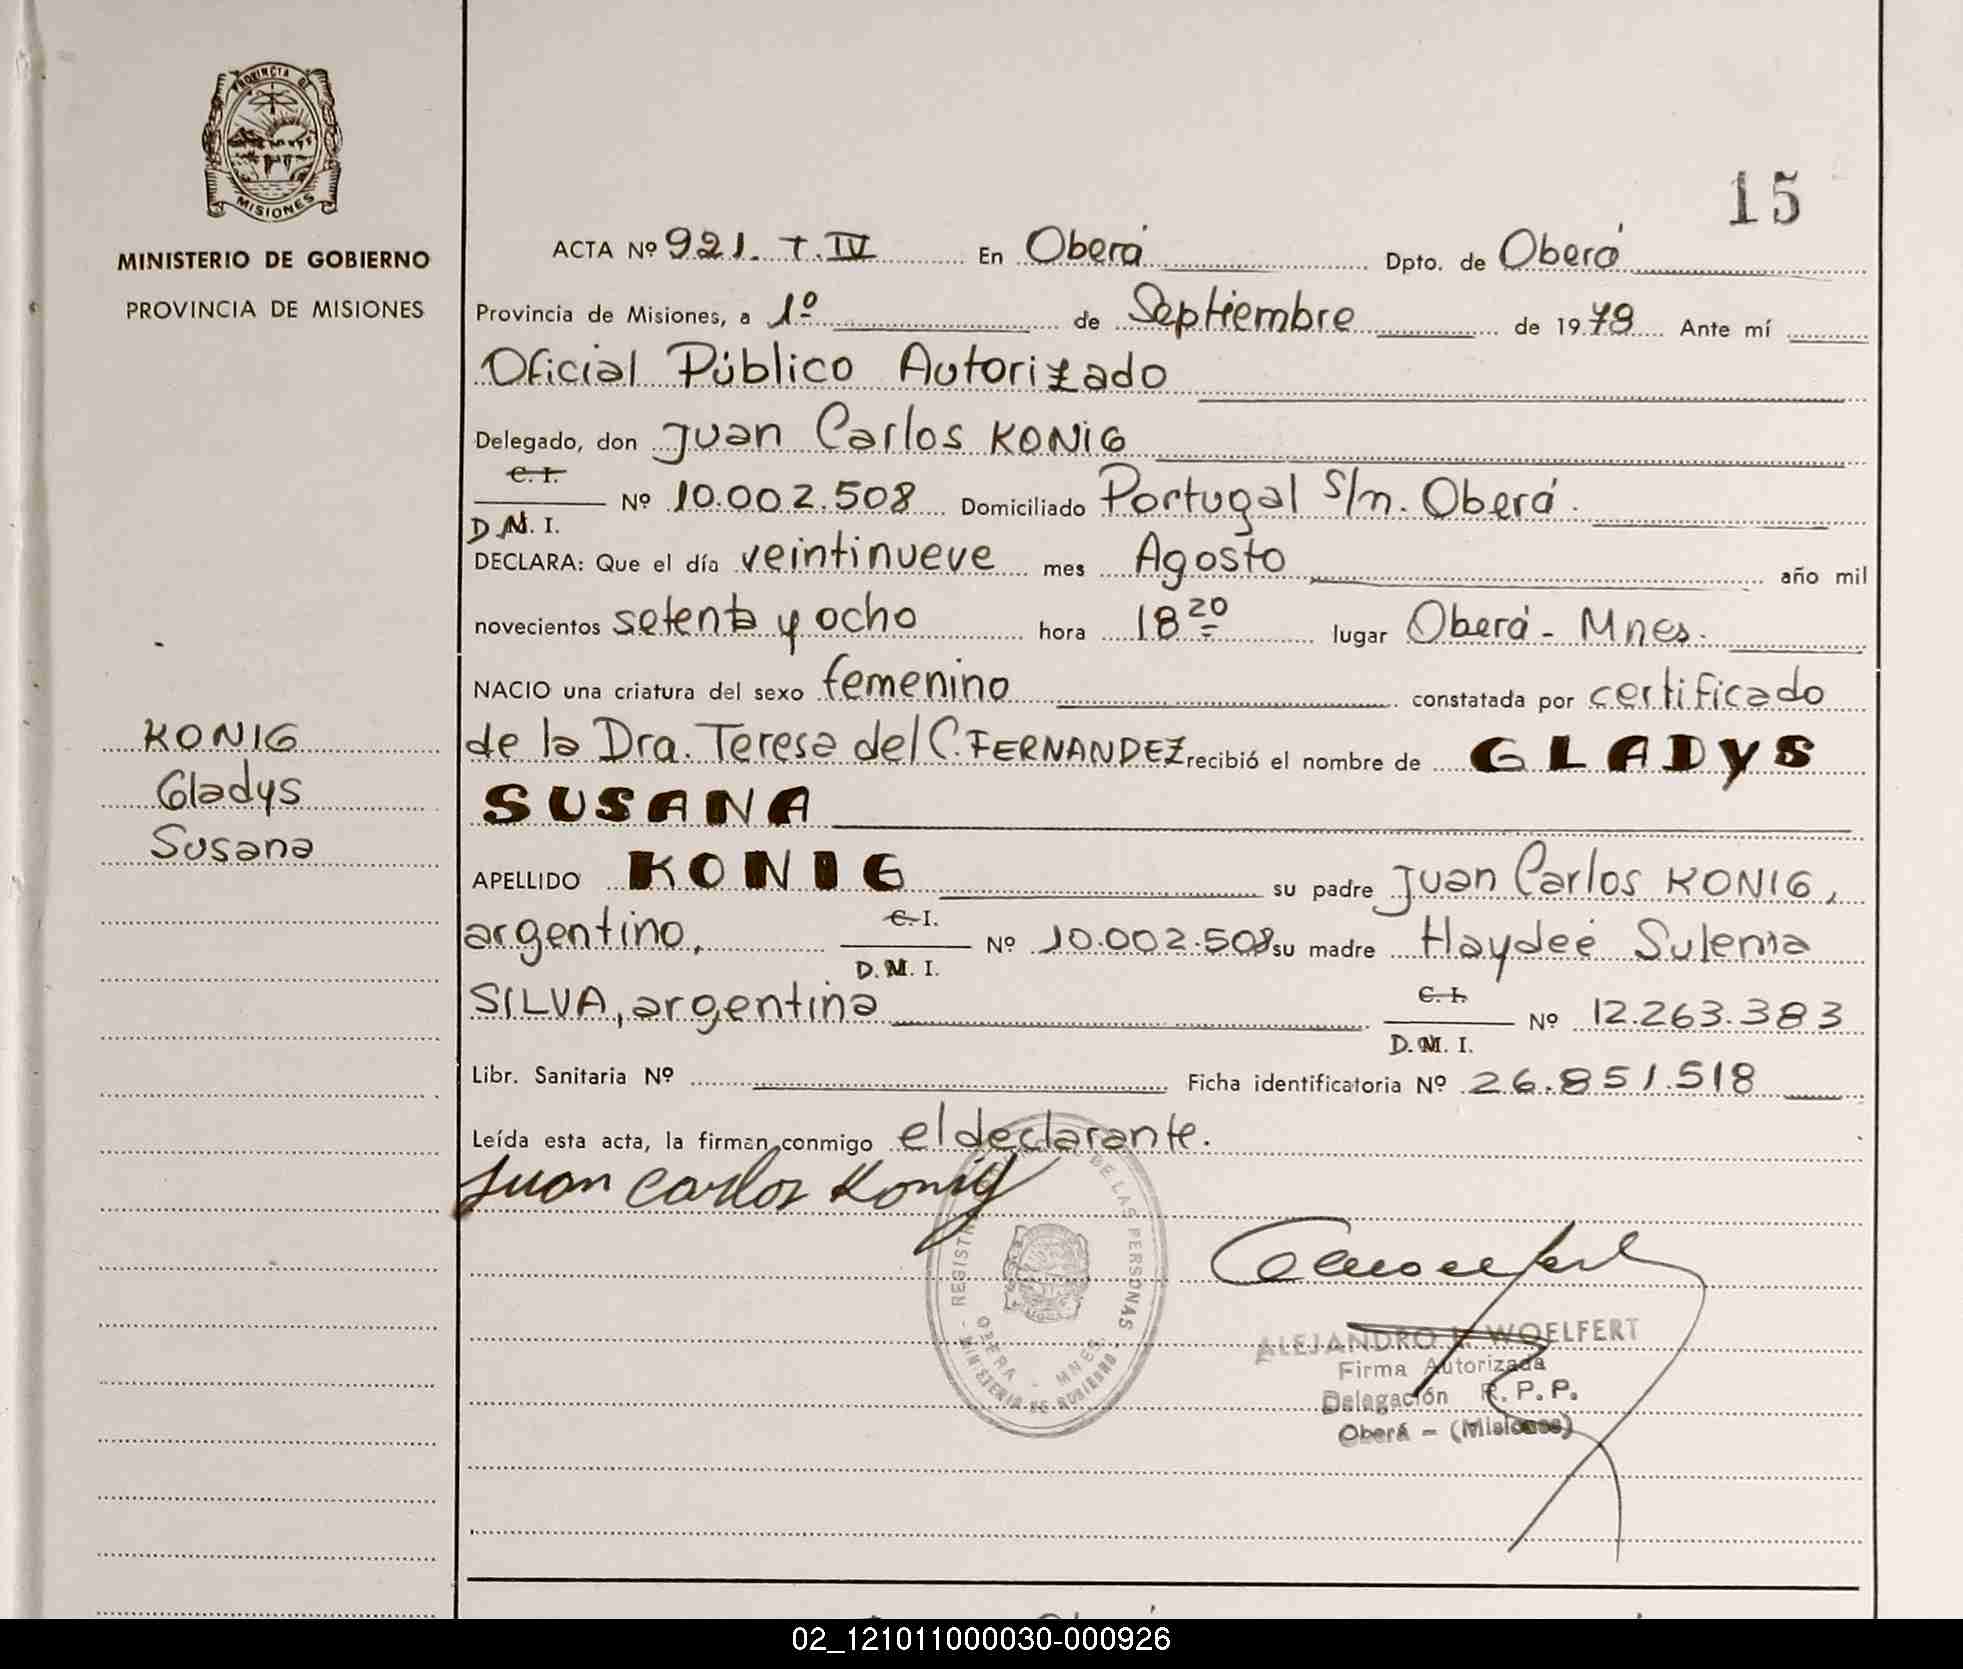 PROVINCIA DE
MISIONES
MINISTERIO DE GOBIERNO
PROVINCIA DE MISIONES
15
ACTA Nº 921. T. IV En Oberá Dpto. de Oberá
Provincia de Misiones, a 1º de Septiembre de 1978 Ante mí
Oficial Público Autorizado
Delegado, don Juan Carlos KONIG
C. I.
D.N.I. Nº 10.002.508 Domiciliado Portugal s/n. Oberá.
DECLARA: Que el día veintinueve mes Agosto año mil
novecientos setenta y ocho hora 18 20 lugar Oberá - Mnes.
NACIO una criatura del sexo femenino constatada por certificado
de la Dra. Teresa del C. FERNANDEZ recibió el nombre de GLADYS
SUSANA
APELLIDO KONIG su padre Juan Carlos KONIG,
argentino, C. I. D.M.I. Nº 10.002.508 su madre Haydeé Sulema
SILVA, argentina C. I. D.M.I. Nº 12.263.383
Libr. Sanitaria Nº Ficha identificatoria Nº 26.851.518
Leída esta acta, la firman conmigo el declarante.
Juan Carlos Konig
KONIG
Gladys
Susana
REGISTRO DE LAS PERSONAS
OBERA - MNES
MINISTERIO DE GOBIERNO
ALEJANDRO WOELFERT
Firma Autorizada
Delegación R. P. P.
Oberá - (Misiones)
02_121011000030-000926